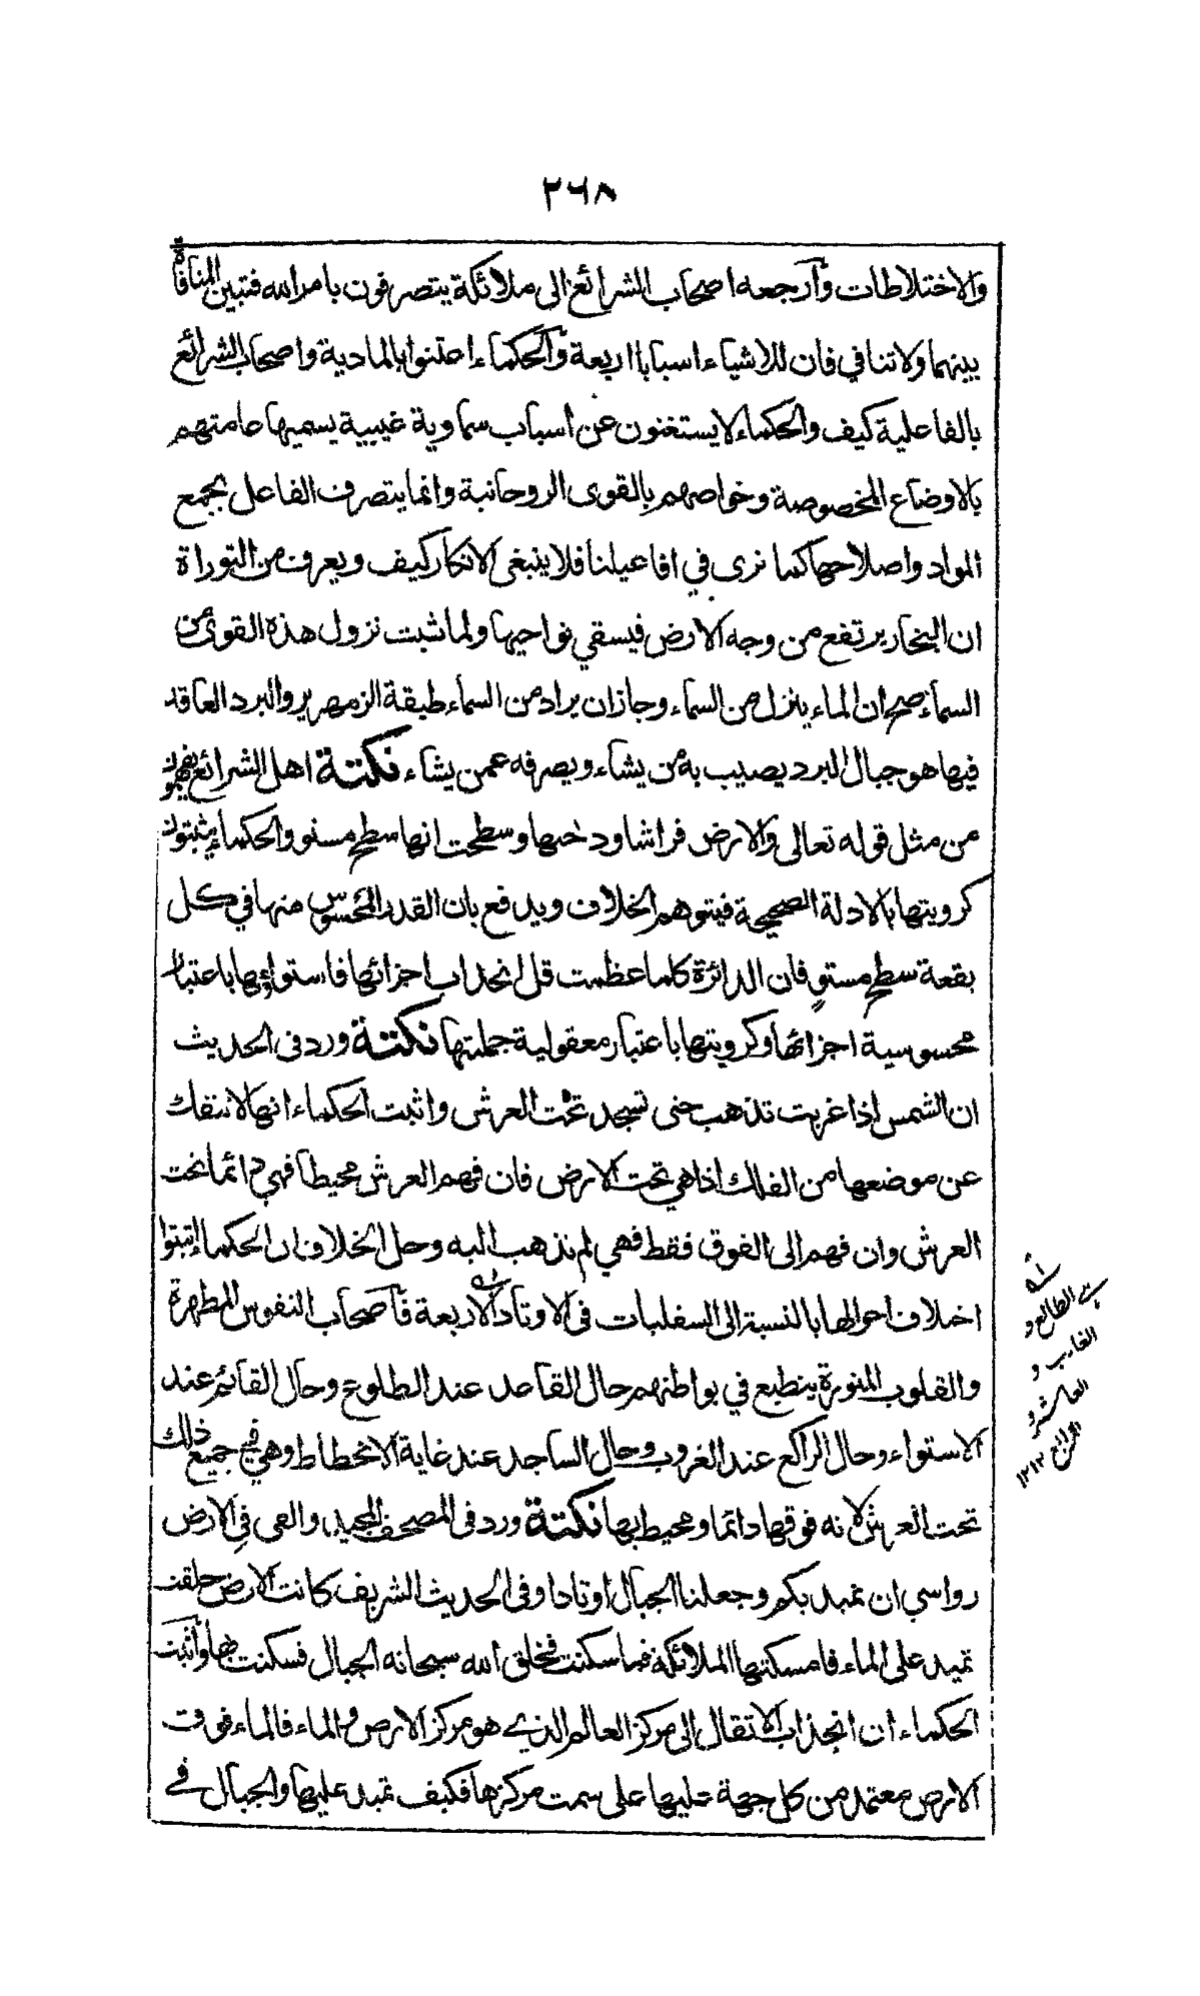 ٢٦٨
والاختلاطات وأرجعه اصحاب الشرائع الى ملائكة يتصرفون بامر الله فتبين المنافاة
بينهما ولا تنافي فان للاشياء اسبابا اربعة والحكماء اعتنوا بالمادية واصحاب الشرائع
بالفاعلية كيف والحكماء لا يستغنون عن اسباب سماوية غيبية يسميها عامتهم
بالاوضاع المخصوصة وخواصهم بالقوى الروحانية وانما يتصرف الفاعل بجمع
المواد واصلاحها كما نرى في افاعيلنا فلا ينبغي الانكار كيف ويعرف من التوراة
ان البخار يرتفع من وجه الارض فيسقي نواحيها ولما ثبت نزول هذه القوى من
السماء صح ان الماء ينزل من السماء وجاز ان يراد من السماء طبقة الزمهرير والبرد العاقد
فيها هو جبال البرد يصيب به من يشاء ويصرفه عمن يشاء نكتة اهل الشرائع يفهمون
من مثل قوله تعالى والارض فراشا ودحها وسطحت انها سطح مستو والحكماء يثبتون
كرويتها بالادلة الصحيحة فيتوهم الخلاف ويدفع بان القدر المحسوس منها في كل
بقعة سطح مستو فان الدائرة كلما عظمت قل انحداب اجزائها فاستواؤها باعتبار
محسوسية اجزائها وكرويتها باعتبار معقولية جملتها نكتة ورد في الحديث
ان الشمس اذا غربت تذهب حتى تسجد تحت العرش واثبت الحكماء انها لا تنفك
عن موضعها من الفلك اذا هي تحت الارض فان فهم العرش محيطا فهي دائما تحت
العرش وان فهم الى الفوق فقط فهي لم تذهب اليه وحل الخلاف ان الحكماء اثبتوا
اختلاف احوالها بالنسبة الى السفليات في الاوتاد الاربعة فاصحاب النفوس المطهرة
والقلوب المنورة ينطبع في بواطنهم حال القاعد عند الطلوع وحال القائم عند
الاستواء وحال الراكع عند الغروب وحال الساجد عند غاية الانحطاط وهي في جميع ذلك
تحت العرش لانه فوقها دائما ومحيط بها نكتة ورد في المصحف المجيد والقى في الارض
رواسي ان تميد بكم وجعلنا الجبال اوتادا وفي الحديث الشريف كانت الارض خلقت
تميد على الماء فامسكتها الملائكة فما سكنت فخلق الله سبحانه الجبال فسكنت بها واثبت
الحكماء ان انجذاب الاثقال الى مركز العالم الذي هو مركز الارض والماء فالماء فوق
الارض معتمد من كل جهة عليها على سمت مركزها فكيف تميد عليها والجبال في
الطالع و
الغارب و
العاشر و
الرابع ١٢١٢